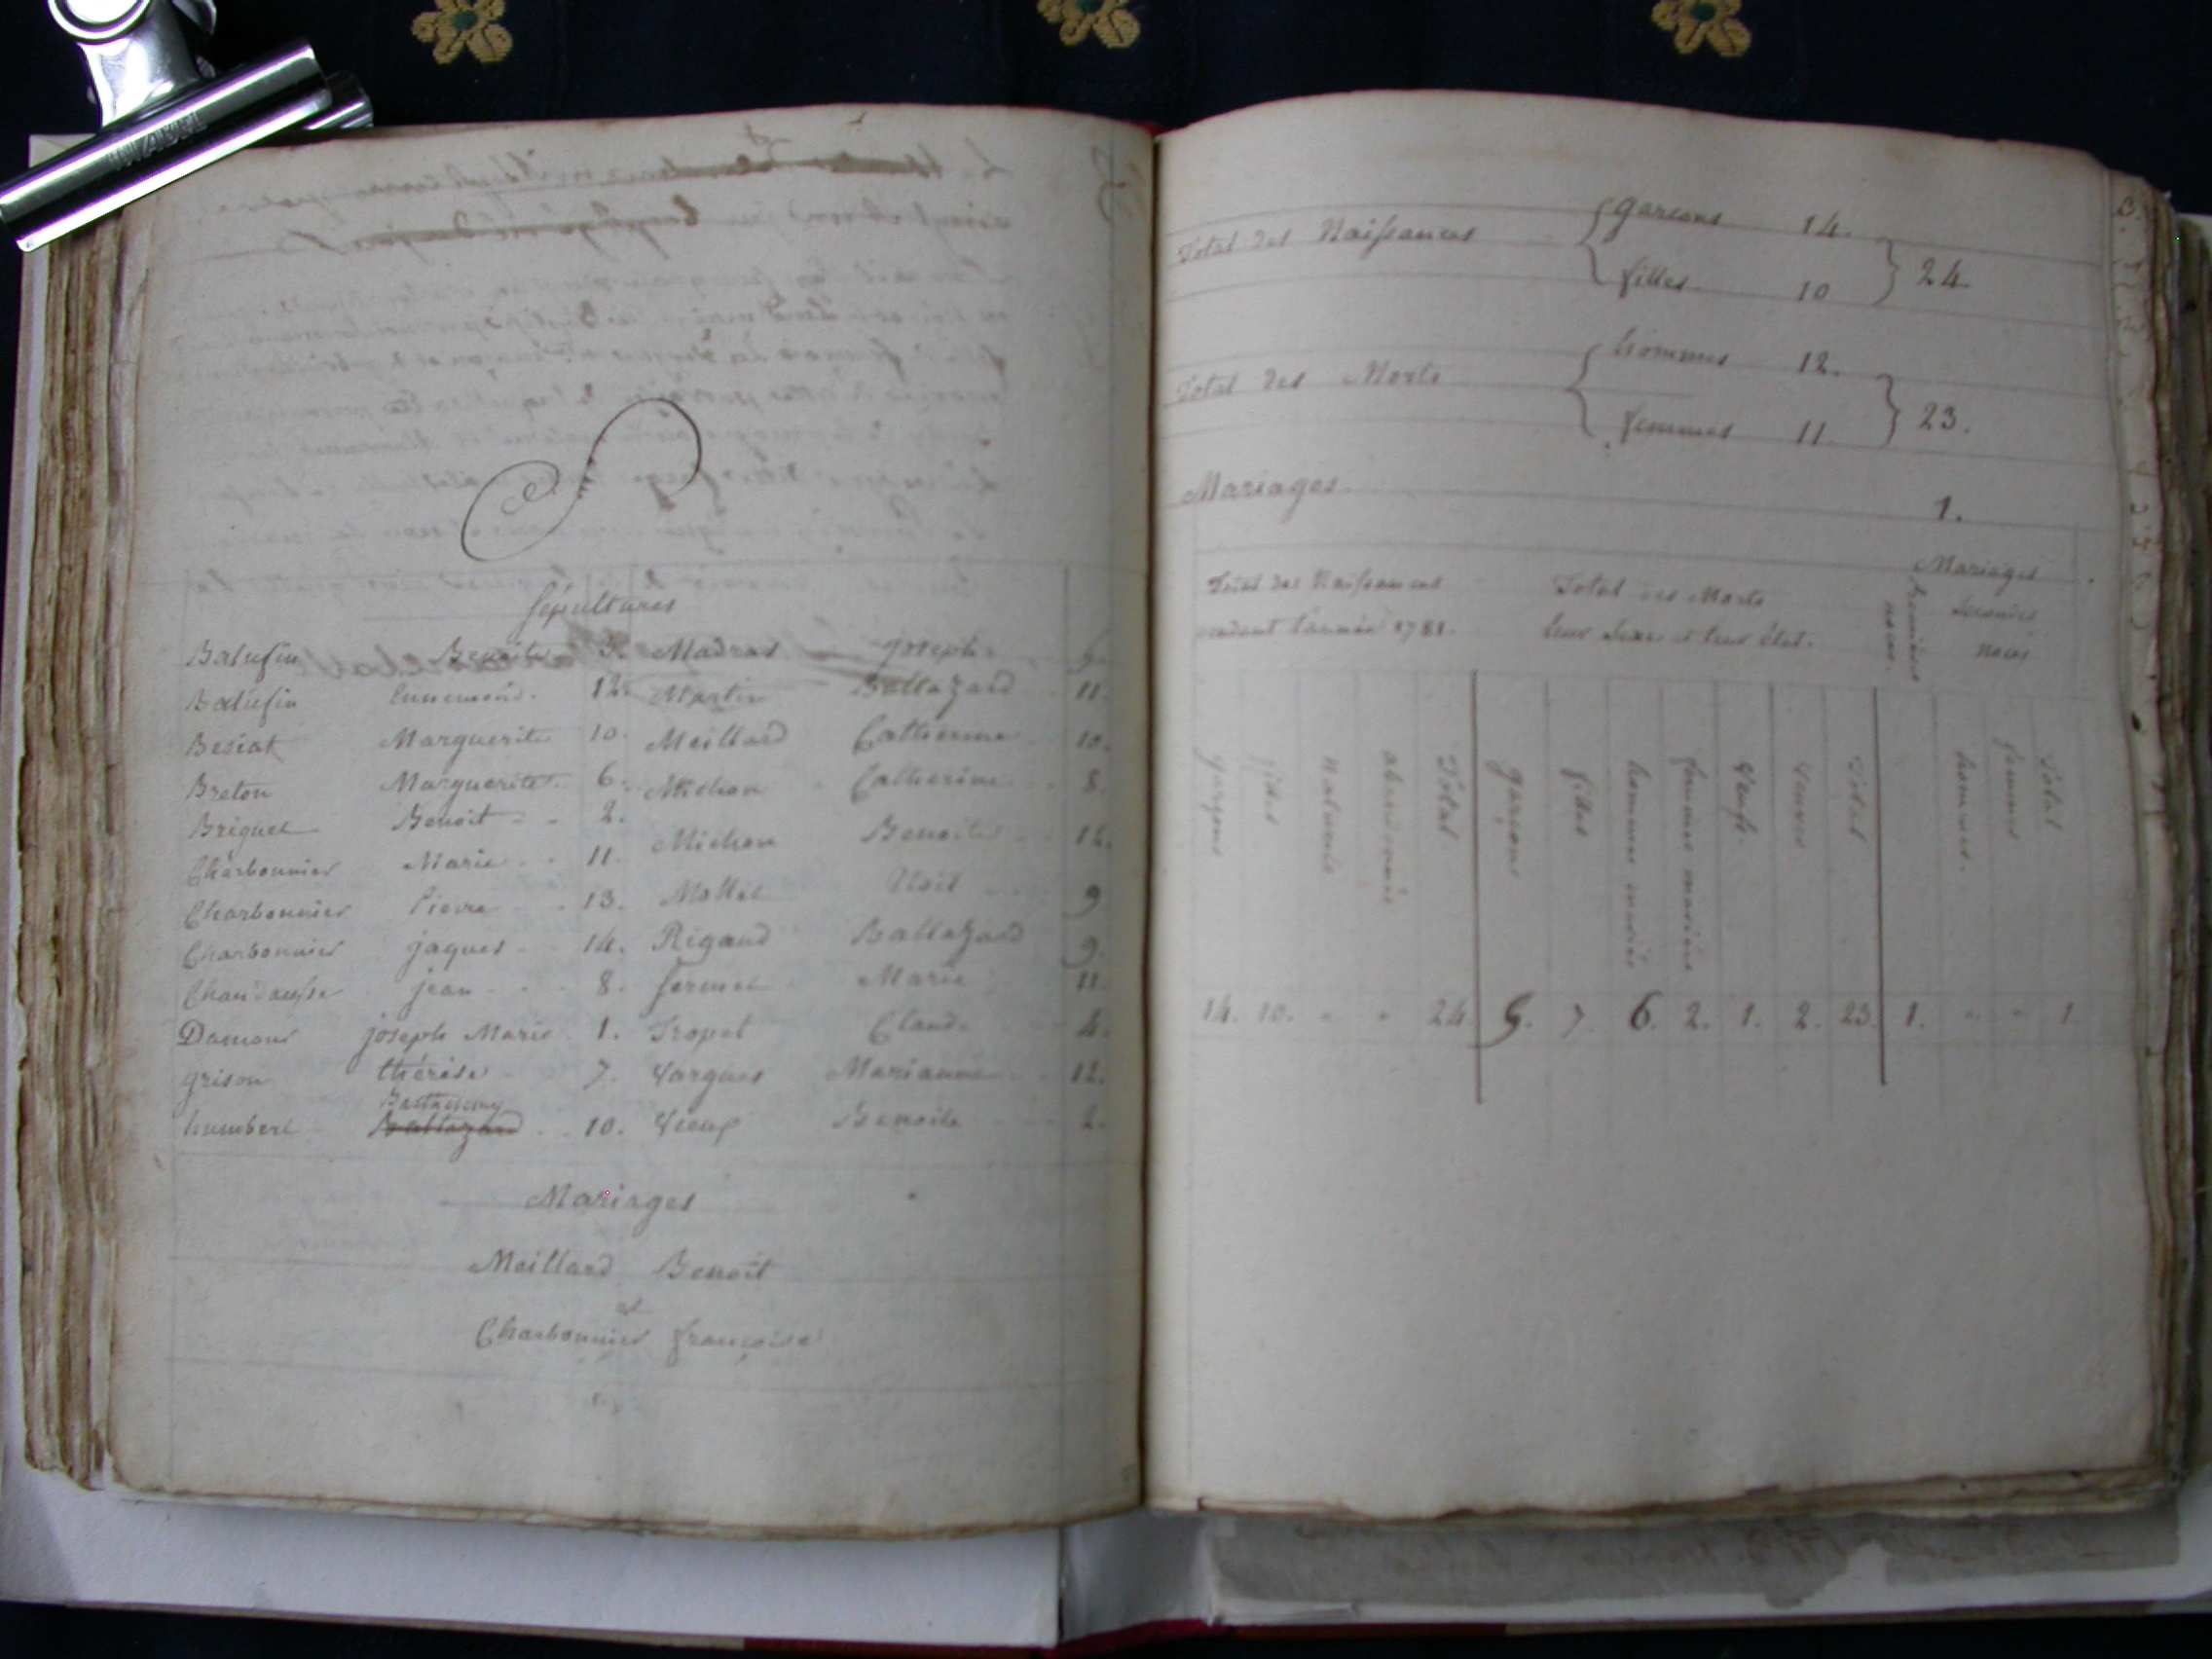 Sépultures
Balufin Benoite 3. Madras joseph 5.
Balufin Ennemond. 12. Martin Baltazard 11.
Besiat Marguerite 10. Meillard Catherine 10.
Breton Marguerite 6. Michon Catherine 8.
Briquet Benoit 2.
Charbonnier Marie 11. Michon Benoite 14.
Charbonnier Pierre 13. Mollet 9
Charbonnier jaques 14. Rigaud Baltazard 9.
jean 8. Marie 11.
Damour joseph Marie 1. Tropet Claude 4.
grison thérèse 7. Vargues Marianne 12.
Barthelemy
humbert Baltazard 10. Vieux Benoite 2.
Mariages
Meillard Benoit
et
Charbonnier françoise
Total des Naissances garçons 14.
filles 10 24
Total des Morts hommes 12.
femmes 11 23.
Mariages 1.
Total des Naissances Total des Morts premieres noces. Mariages
pendant l'année 1781. leur sexe et leur état. secondes
noces
garçons filles naturels abandonnés Total garçons filles hommes mariés femmes mariées Veufs. Veuves Total hommes. femmes Total
14. 10. " " 24 5. 7. 6. 2. 1. 2. 23. 1. " " 1.